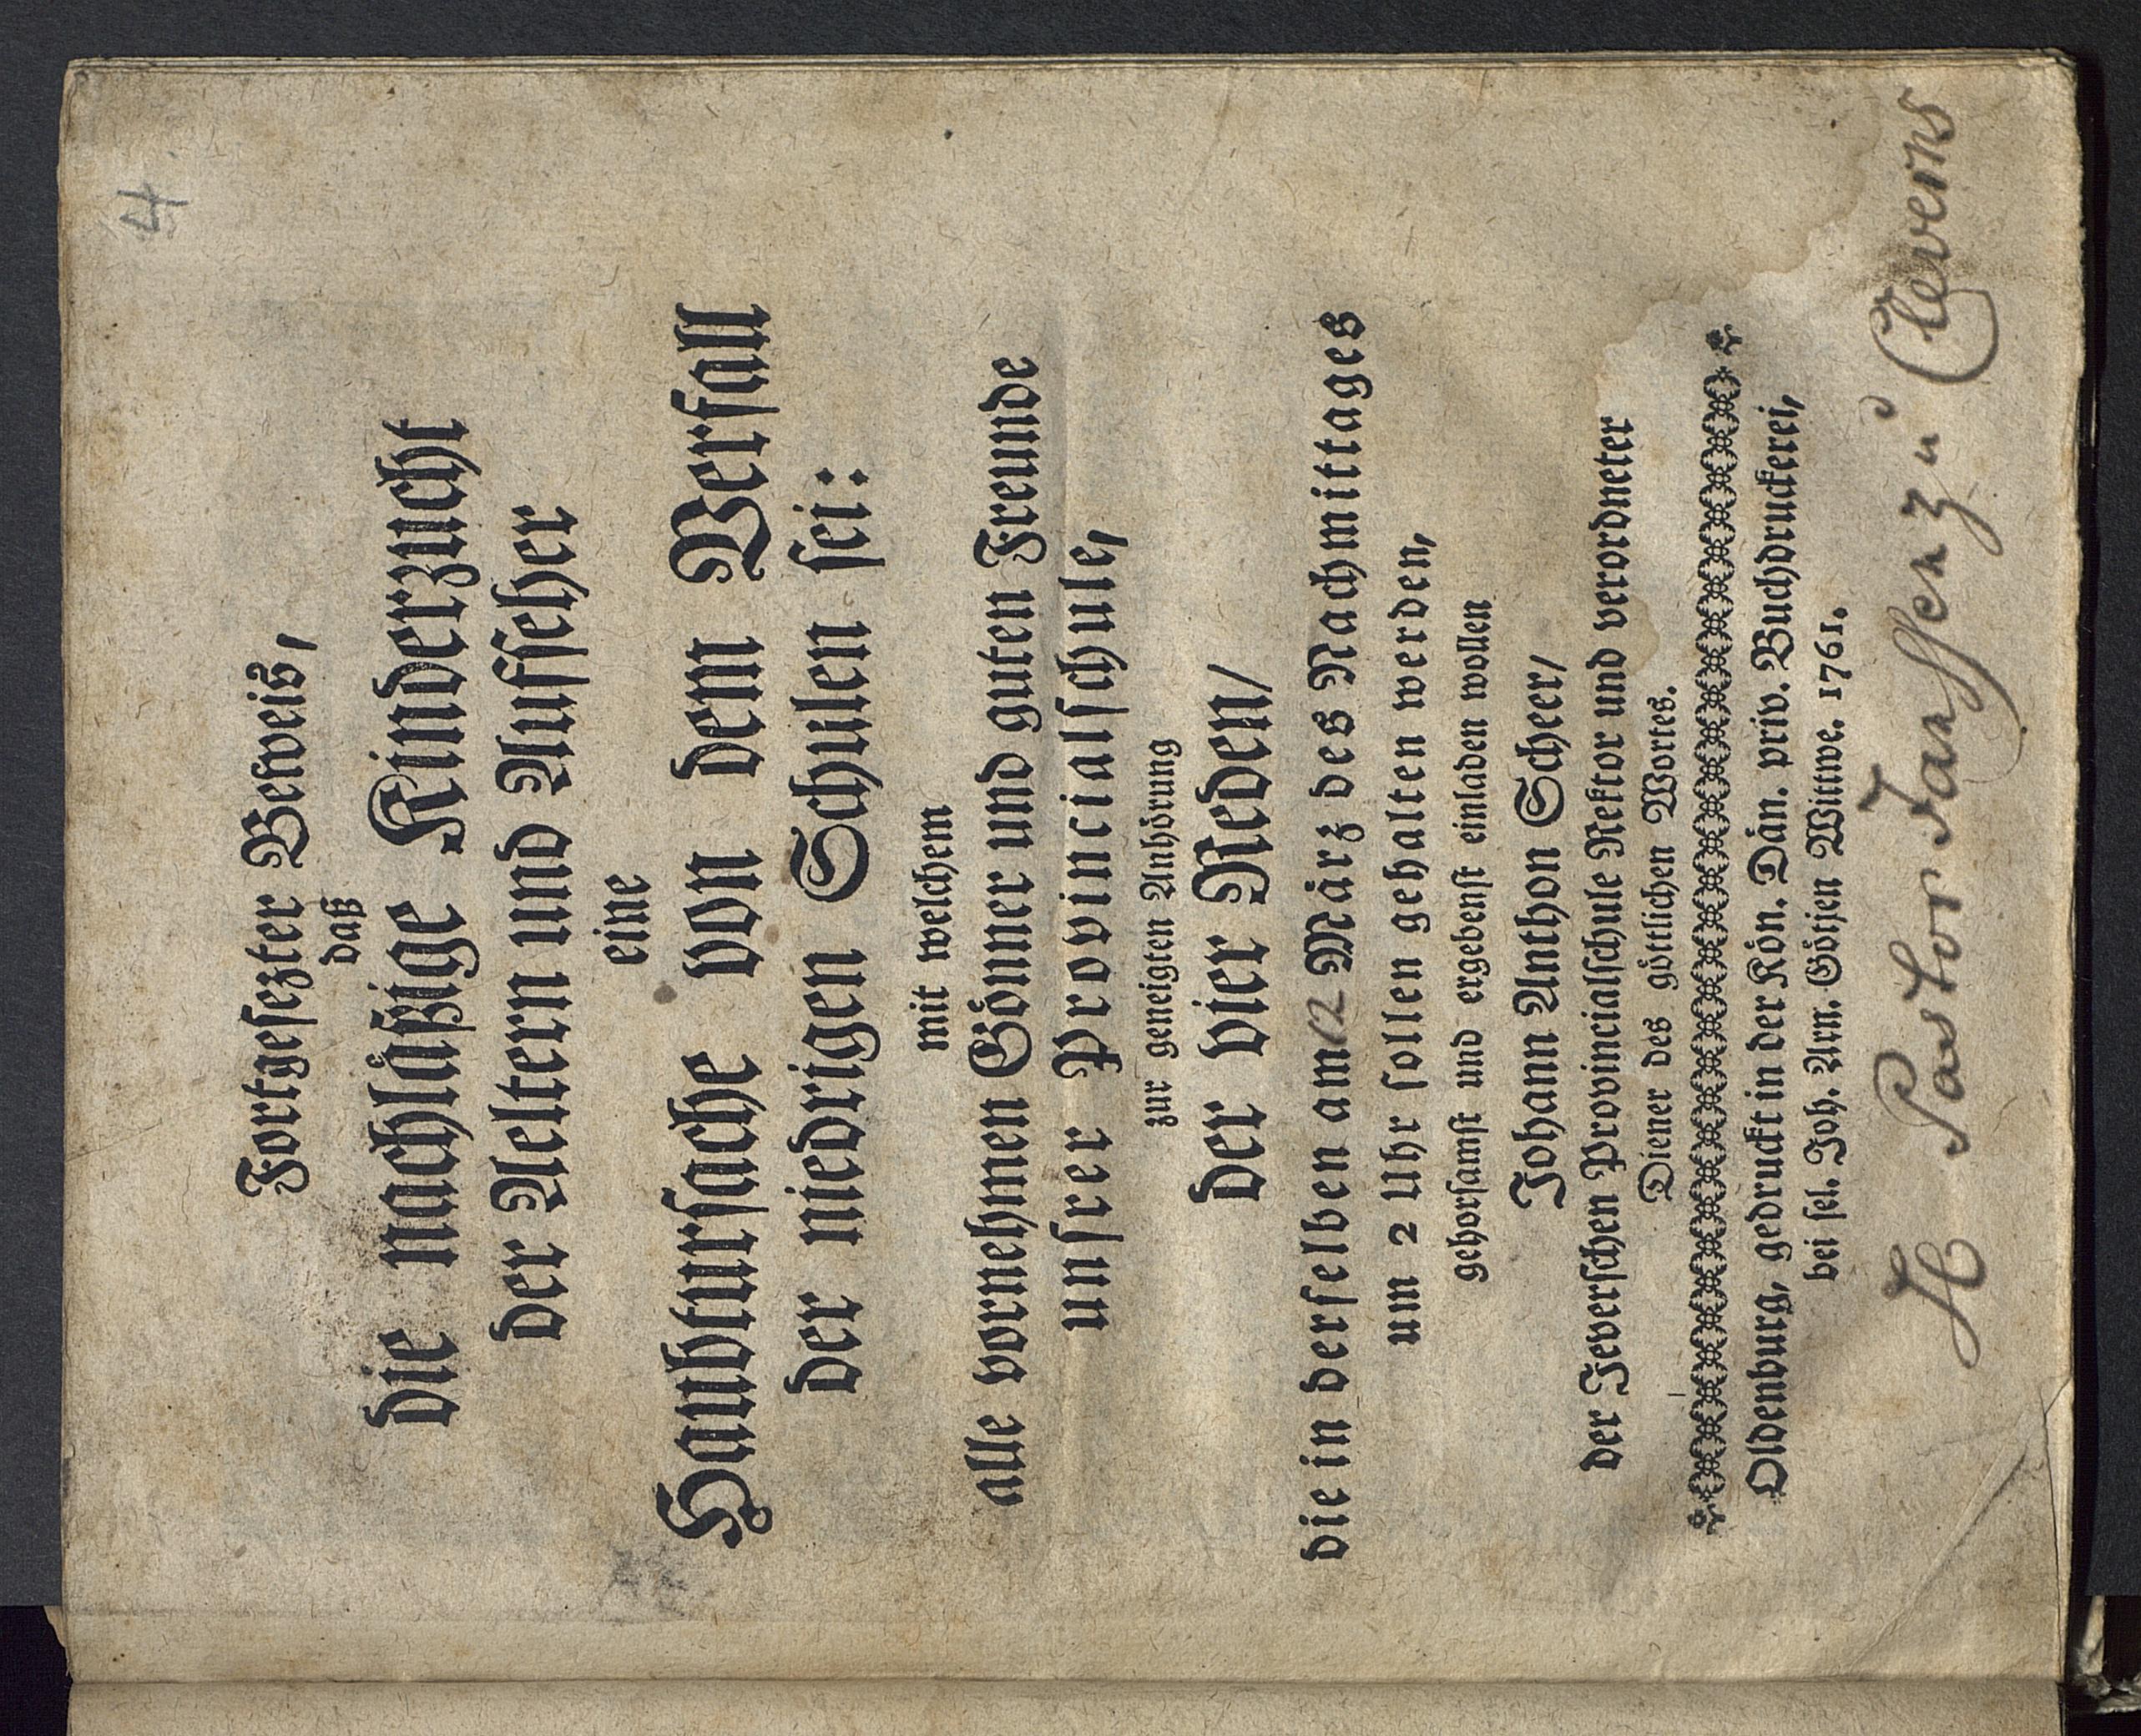 4
Fortgesezter Beweis,
daß
die nachläßige Kinderzucht
der Aeltern und Aufseher
eine
Haubtursache von dem Verfall
der niedrigen Schulen sei:
mit welchem
alle vornehmen Gönner und guten Freunde
unsrer Provincialschule,
zur geneigten Anhörung
der vier Reden/
die in derselben am 12 März des Nachmittages
um 2 Uhr sollen gehalten werden,
gehorsamst und ergebenst einladen wollen
Johann Anthon Scheer/
der Jeverschen Provincialschule Rektor und verordneter
Diener des göttlichen Wortes.
Oldenburg, gedruckt in der Kön. Dän. priv. Buchdruckerei,
bei sel. Joh. Arn. Götjen Wittwe. 1761.
H Pastor Janssen zu Cleverns